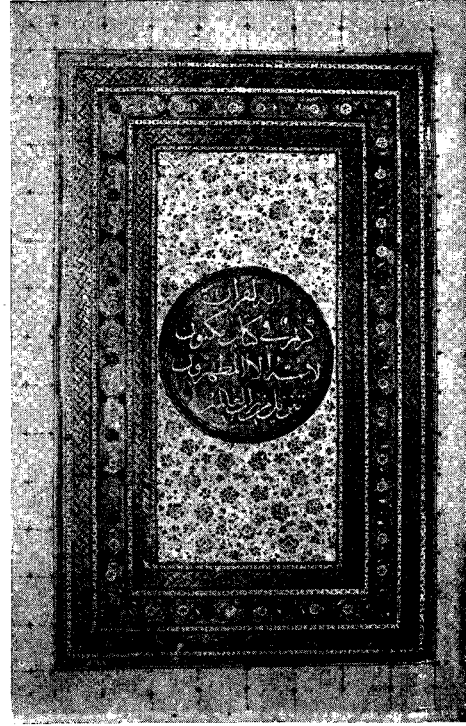 انه لقرآن
كريم في كتاب مكنون
لا يمسه الا المطهرون
تنزيل من رب العالمين